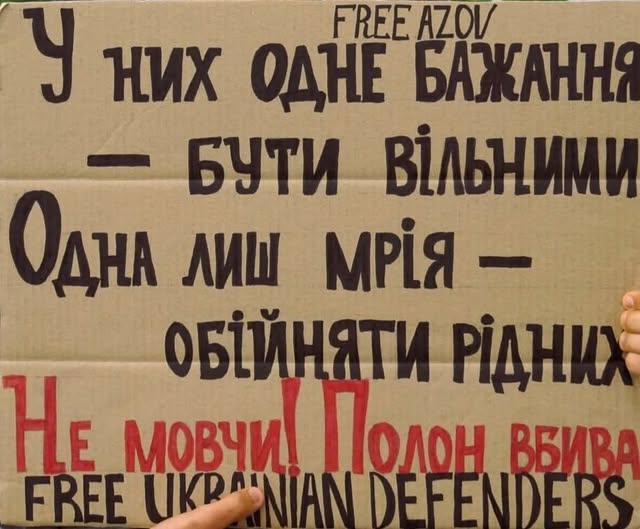 FREE AZOV
У них одне бажання
— бути вільними
Одна лиш мрія —
обійняти рідних
Не мовчи! Полон вбива
FREE UKRAINIAN DEFENDERS